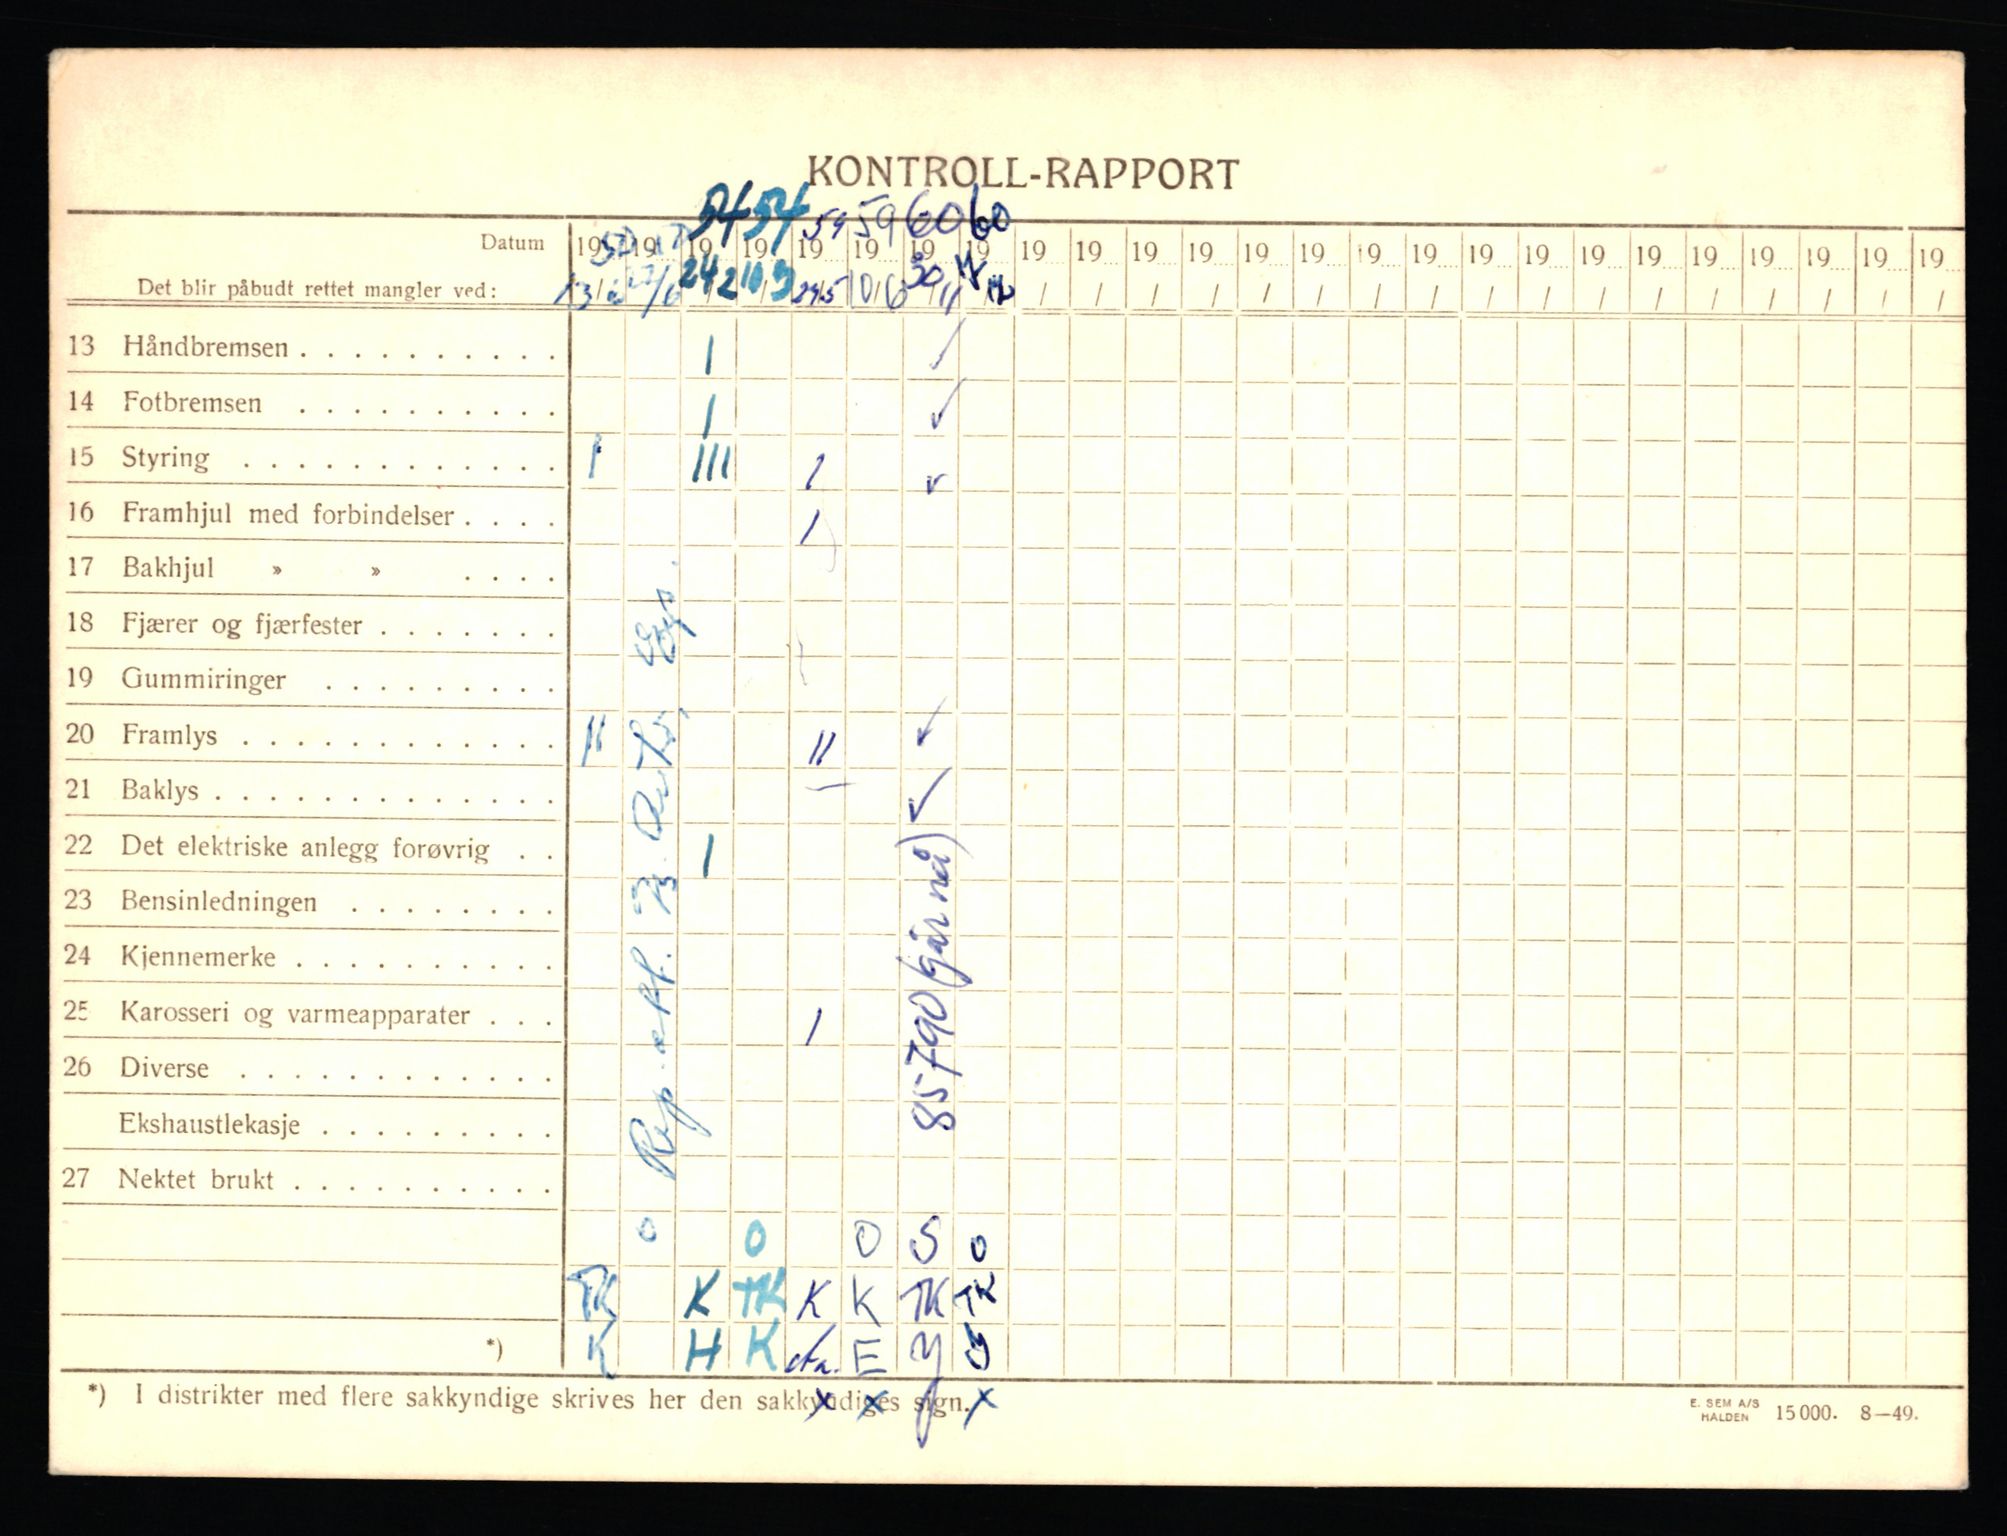 KONTROLL-RAPPORT
54 54 59 59 60 60
Datum 19 19 19 19 19 19 19 19 19 19 19 19 19 19 19 19 19 19 19 19 19 19 19 19 19
Det blir påbudt rettet mangler ved: 24 2 10 3 29/5 10/6 30/11
13 Håndbremsen . . . . . . . . . . I ✓
14 Fotbremsen . . . . . . . . . . I ✓
15 Styring . . . . . . . . . . . . I III I ✓
16 Framhjul med forbindelser . . . . I
17 Bakhjul » » . . . .
18 Fjærer og fjærfester . . . . . . .
19 Gummiringer . . . . . . . . .
20 Framlys . . . . . . . . . . . . II II ✓
21 Baklys . . . . . . . . . . . . . ✓
22 Det elektriske anlegg forøvrig . . I
23 Bensinledningen . . . . . . . .
24 Kjennemerke . . . . . . . . . .
25 Karosseri og varmeapparater . . . I
26 Diverse . . . . . . . . . . . .
Ekshaustlekasje . . . . . . . . .
27 Nektet brukt . . . . . . . . . .
Rep.
85790 (går nå)
0 0 0 S 0
TK K TK K K TK TK
*) K H K E Y Y
*) I distrikter med flere sakkyndige skrives her den sakkyndiges sign.
x x x
E. SEM A/S
HALDEN 15000. 8—49.